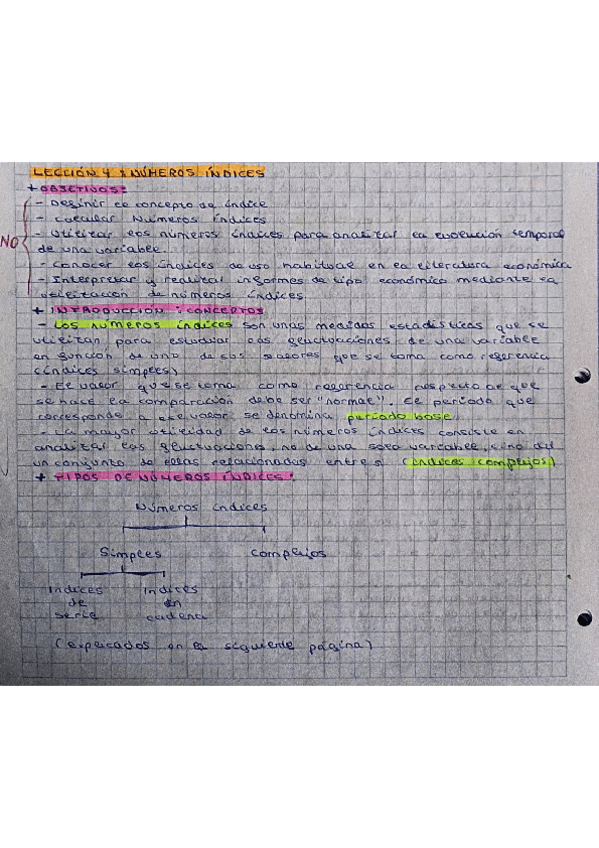 LECCIÓN 4: NÚMEROS ÍNDICES
+ OBJETIVOS:
- Definir el concepto de índice
- Calcular Números índices
NO
- Utilizar los números índices para analizar la evolución temporal
de una variable.
- Conocer los índices de uso habitual en la literatura económica
- Interpretar y realizar informes de tipo económico mediante la
utilización de números índices
+ INTRODUCCIÓN: CONCEPTOS
- Los números índices son unas medidas estadísticas que se
utilizan para estudiar las fluctuaciones de una variable
en función de uno de sus valores que se toma como referencia
(índices simples)
- El valor que se toma como referencia respecto al que
se hace la comparación debe ser "normal". El período que
corresponde a ese valor se denomina período base
- La mayor utilidad de los números índices consiste en
analizar las fluctuaciones, no de una sola variable, sino de
un conjunto de ellas relacionadas entre sí (índices complejos)
+ TIPOS DE NÚMEROS ÍNDICES:
Números índices
Simples complejos
Indices Indices
de en
serie cadena
(explicados en la siguiente página)